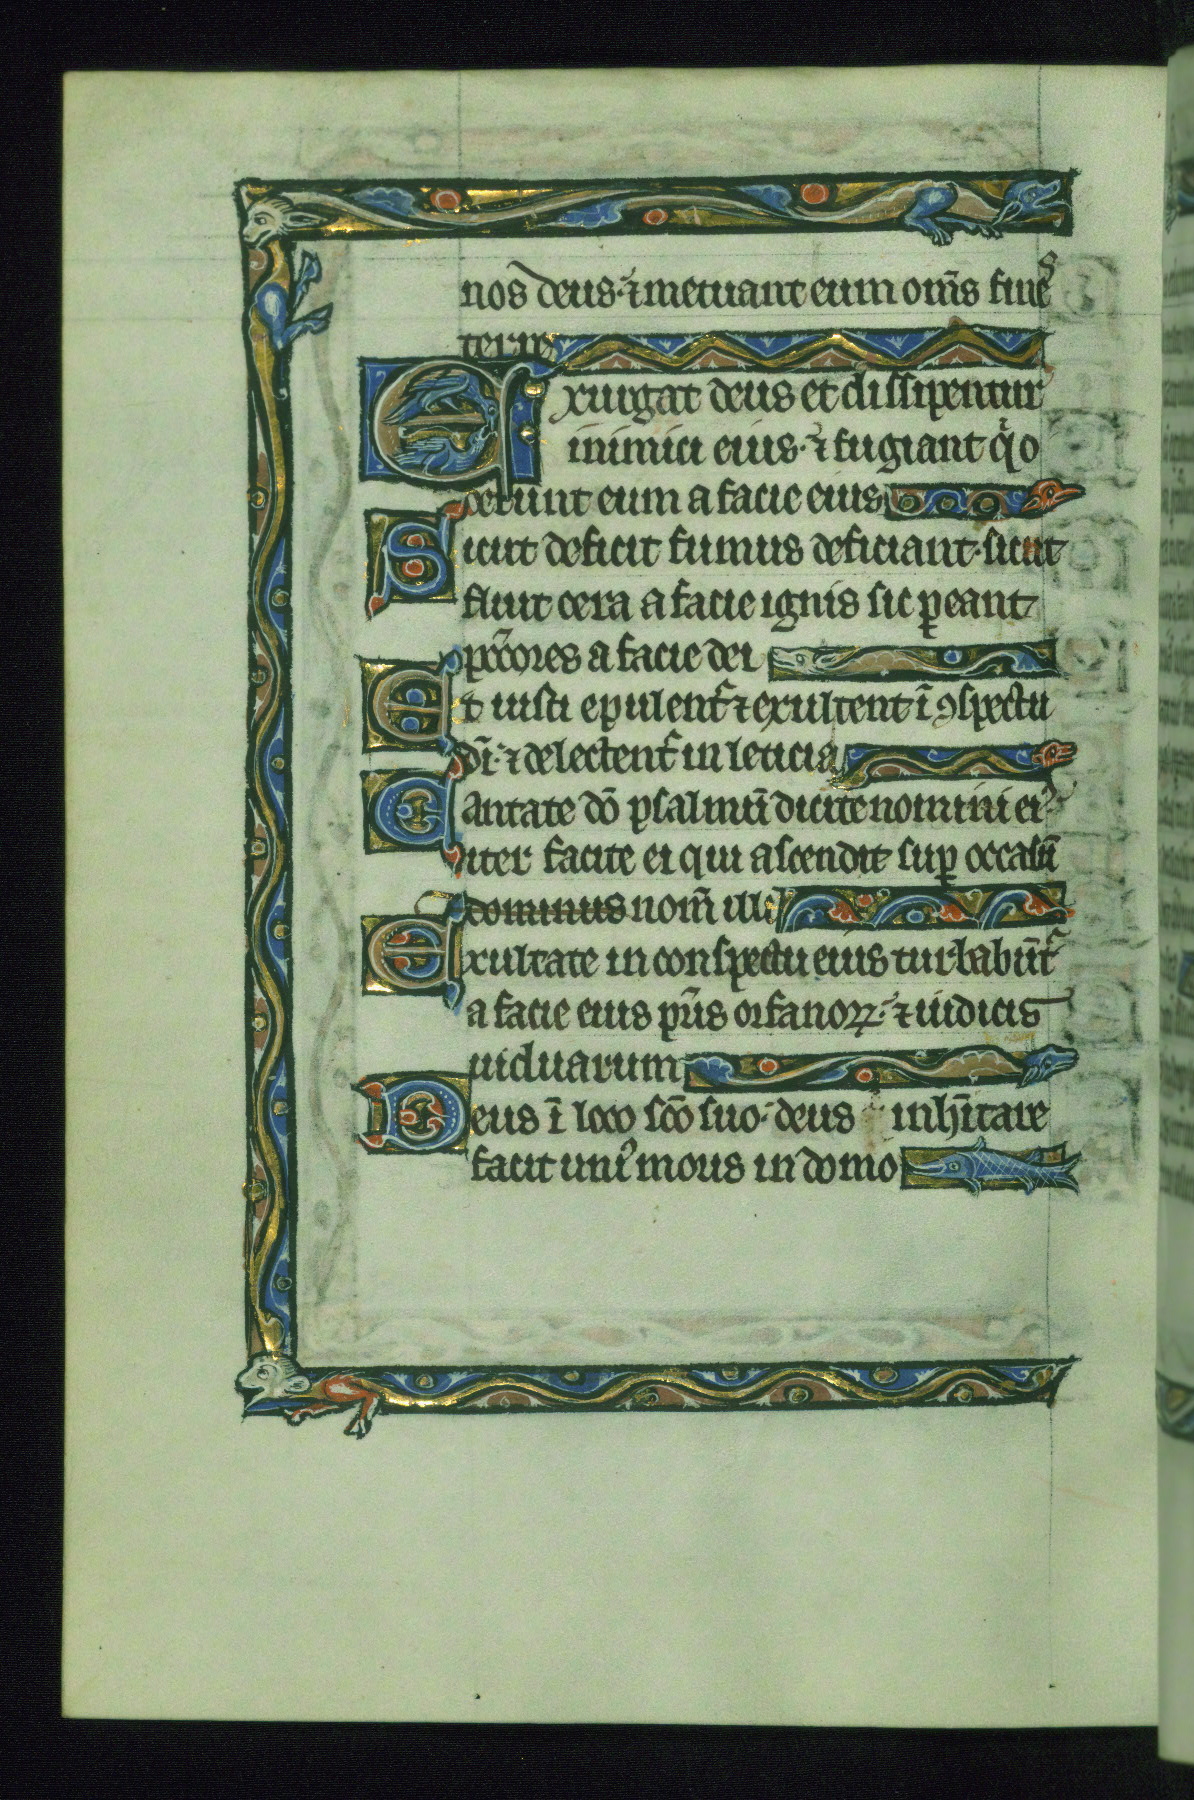 nos deus· ⁊ metuant eum om̄s fines
terre
Exurgat deus et dissipentur
inimici eius· ⁊ fugiant qͥ o
derunt eum a facie eius
Sicut deficit fumus deficiant· sicut
fluit cera a facie ignis sic ꝑeant
pc̄cores a facie dei
Et iusti epulent᷑ ⁊ exultent ī ꝯspectu
dī· ⁊ delectent᷑ in leticia
Cantate dō psalmū dicite nomini eiꝰ
iter facite ei qui ascendit suꝑ occasū
dominus nom̄ illi
Exultate in conspectu eius turbabūt᷑
a facie eius pr̄is orfanoꝝ· ⁊ iudicis
uiduarum
Deus ī loco sc̄o suo· deus inhītare
facit uniꝰ moris in domo